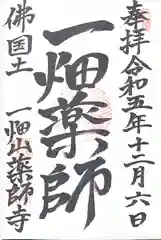 奉拝 令和五年十二月六日
一畑薬師
佛国土 一畑山薬師寺